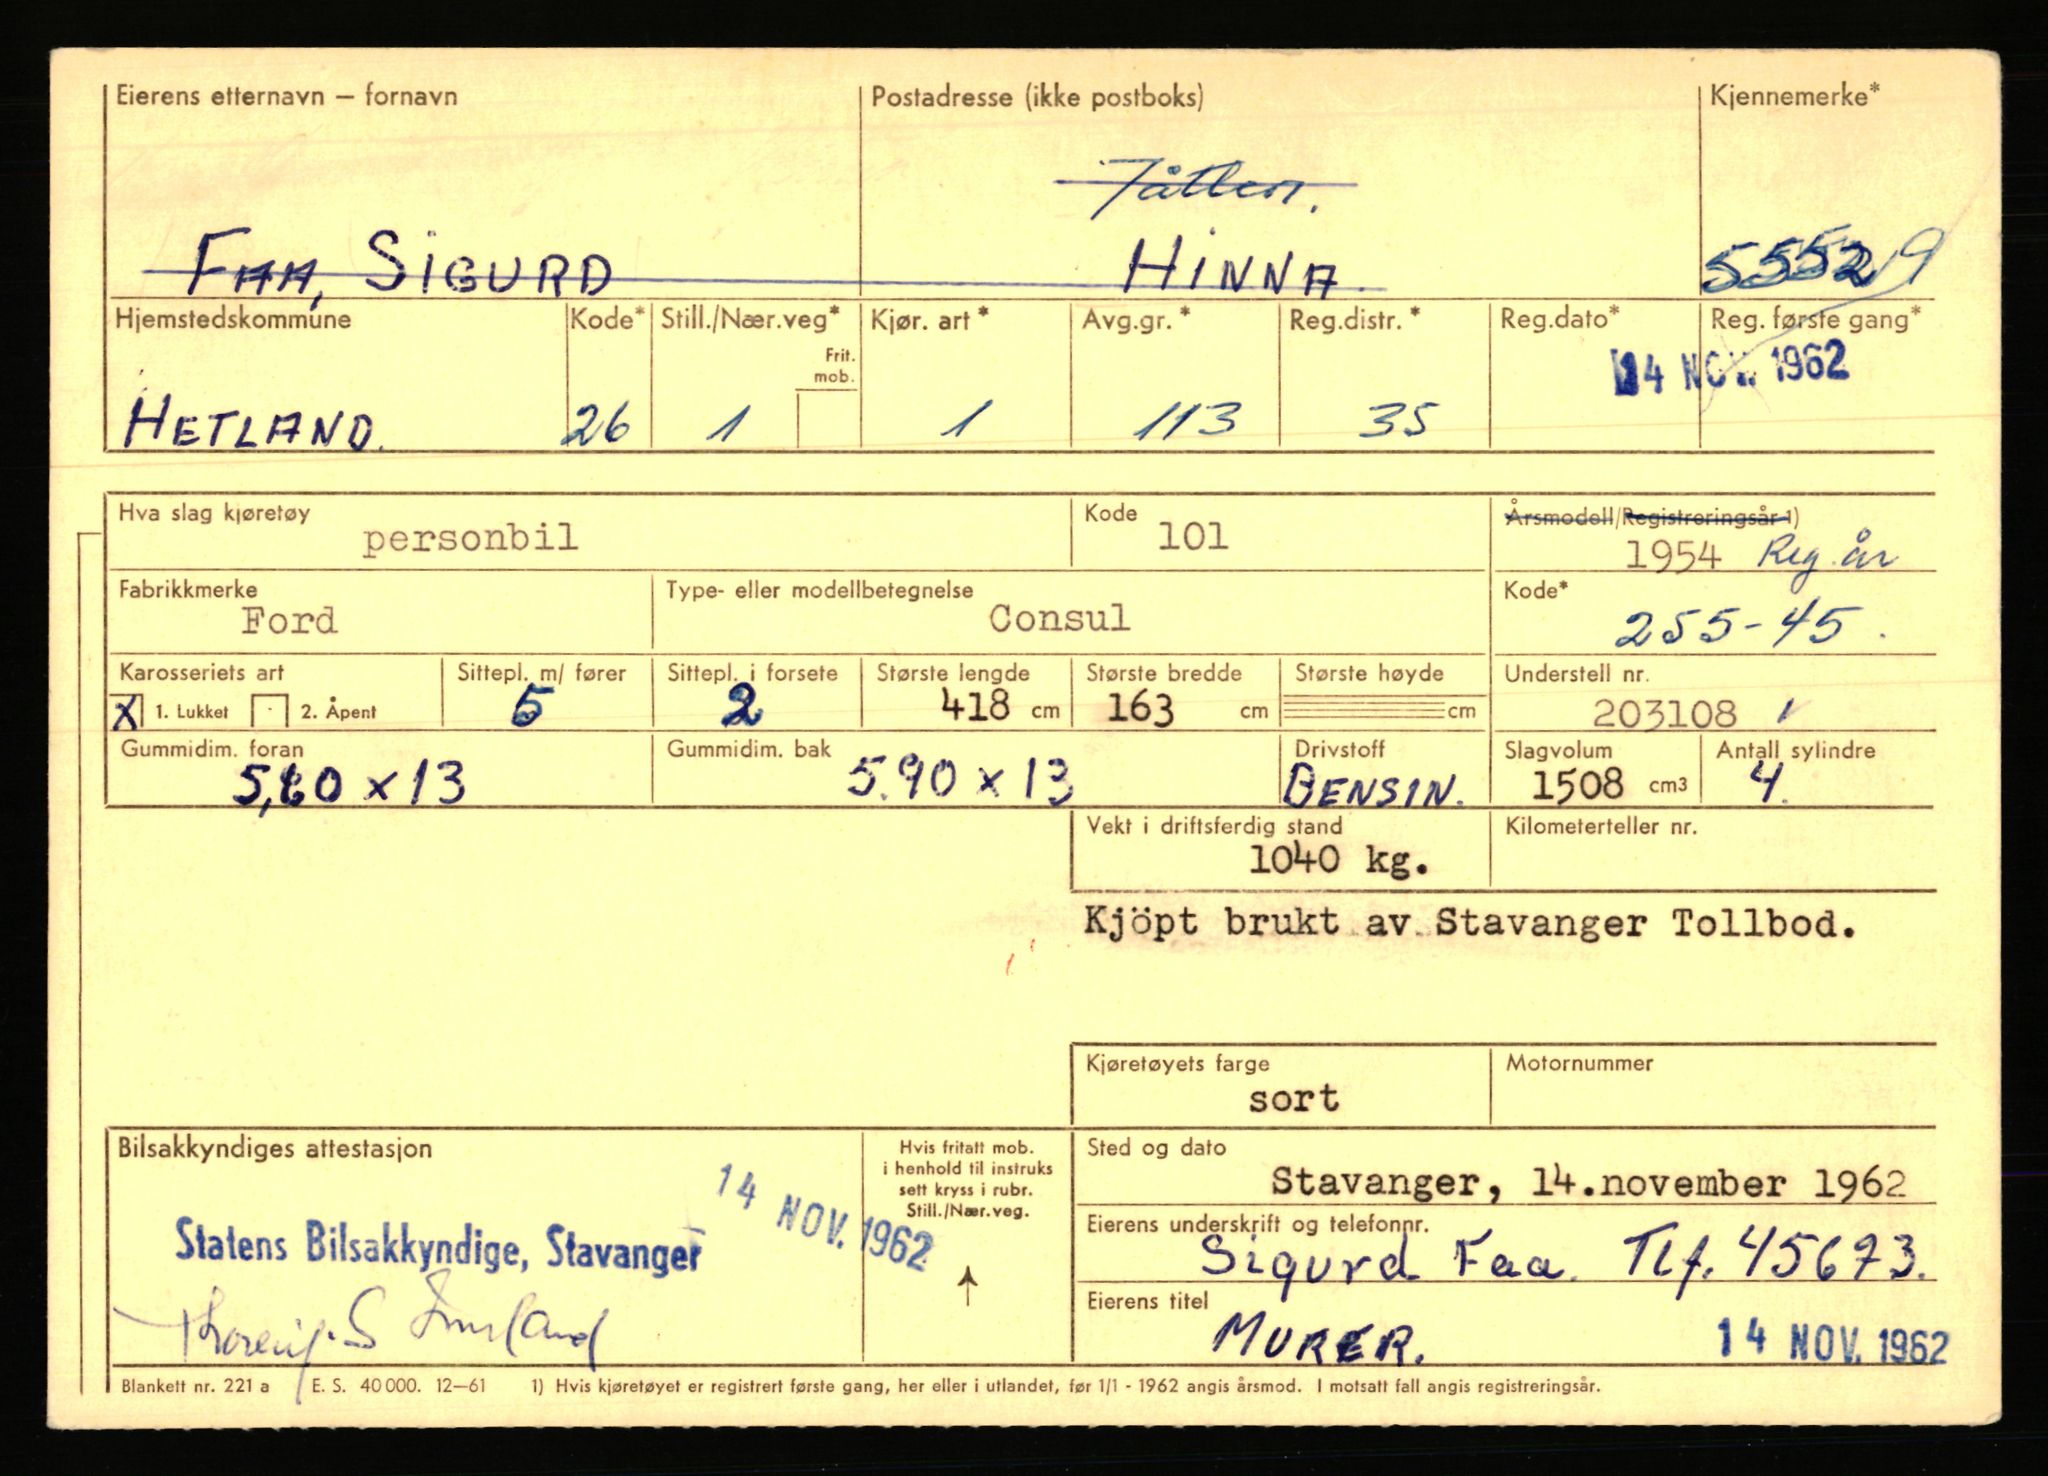 Eierens etternavn – fornavn
Postadresse (ikke postboks)
Kjennemerke*
Jåtten.
FAA, SIGURD
HINNA.
Hjemstedskommune
Kode*
Still./Nær.veg*
Frit. mob.
Kjør. art*
Avg.gr.*
Reg.distr.*
Reg.dato*
Reg. første gang*
14 NOV. 1962
HETLAND.
26
1
1
113
35
Hva slag kjøretøy
personbil
Kode
101
Årsmodell/Registreringsår 1)
1954 Reg. år
Fabrikkmerke
Ford
Type- eller modellbetegnelse
Consul
Kode*
255-45.
Karosseriets art
X 1. Lukket 2. Åpent
Sittepl. m/ fører
5
Sittepl. i forsete
2
Største lengde
418 cm
Største bredde
163 cm
Største høyde
cm
Understell nr.
203108
Gummidim. foran
x 13
Gummidim. bak
5.90 x 13
Drivstoff
BENSIN.
Slagvolum
1508 cm3
Antall sylindre
4.
Vekt i driftsferdig stand
1040 kg.
Kilometerteller nr.
Kjöpt brukt av Stavanger Tollbod.
Kjøretøyets farge
sort
Motornummer
Bilsakkyndiges attestasjon
14 NOV. 1962
Statens Bilsakkyndige, Stavanger
Hvis fritatt mob.
i henhold til instruks
sett kryss i rubr.
Still./Nær.veg.
Sted og dato
Stavanger, 14.november 1962
Eierens underskrift og telefonnr.
Sigurd Faa. Tlf. 45673.
Eierens titel
MURER.
14 NOV. 1962
Blankett nr. 221 a E. S. 40 000. 12–61 1) Hvis kjøretøyet er registrert første gang, her eller i utlandet, før 1/1 - 1962 angis årsmod. I motsatt fall angis registreringsår.